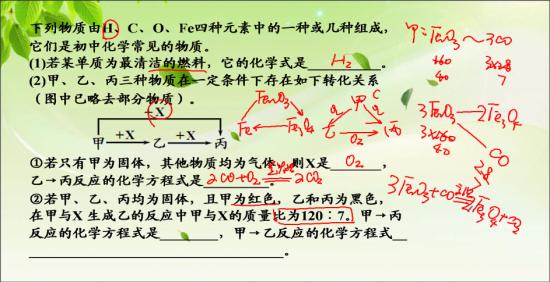 下列物质由H、C、O、Fe四种元素中的一种或几种组成,
它们是初中化学常见的物质。
(1)若某单质为最清洁的燃料,它的化学式是 H₂ 。
(2)甲、乙、丙三种物质在一定条件下存在如下转化关系
(图中已略去部分物质)。
+X
甲 +X 乙 +X 丙
Fe₂O₃
Fe Fe₃O₄
甲 C
O₂ O₂
乙 丙
①若只有甲为固体,其他物质均为气体,则X是 O₂ ,
乙→丙反应的化学方程式是 2CO+O₂ 点燃 2CO₂ 。
②若甲、乙、丙均为固体,且甲为红色,乙和丙为黑色,
在甲与X 生成乙的反应中甲与X的质量比为120∶7。甲→丙
反应的化学方程式是 ,甲→乙反应的化学方程式
。
甲=Fe₂O₃~3CO
160 3×28
40 7
3Fe₂O₃—2Fe₃O₄
3×160
40
CO
28
3Fe₂O₃+CO 高温 2Fe₃O₄+CO₂